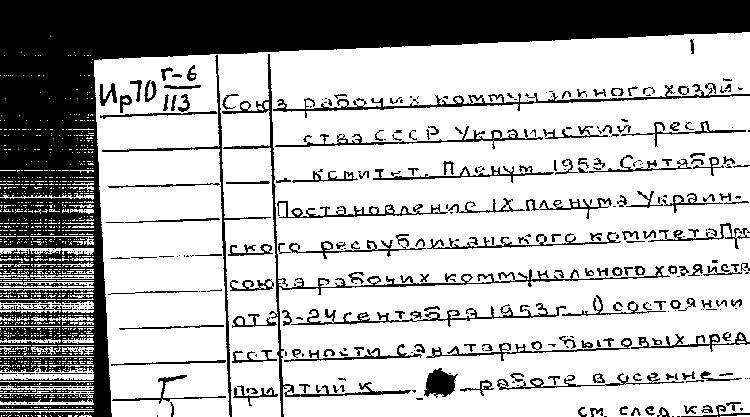 1
Ир70 Г-6/113 Союз рабочих коммунального хозяй-
ства СССР Украинский респ
комитет. Пленум 1953. Сентябрь
Постановление IX пленума Украин-
ского республиканского комитета Про
союза рабочих коммунального хозяйств
от 23-24 сентября 1953 г. „О состоянии
готовности санитарно-бытовых пред
приятий к работе в осенне-
см след карт.
Б